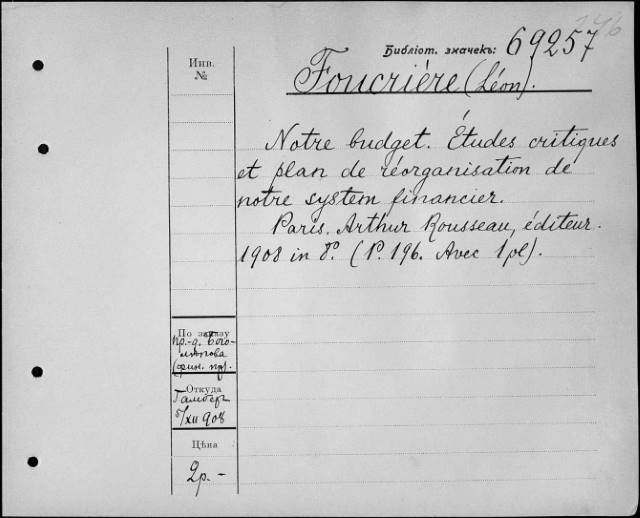 246
Библіот. значекъ: 69257
Инв.
№
Foucriére (Léon).
Notre budget. Études critiques
et plan de réorganisation de
notre system financier.
Paris. Arthur Rousseau, éditeur.
1908 in 8º. (P. 196. Avec 1 pl).
По заказу
пр.-д. Бого-
лѣпова
(фин. пр).
Откуда
Гамберъ
5/XII 908
Цѣна
2р. -